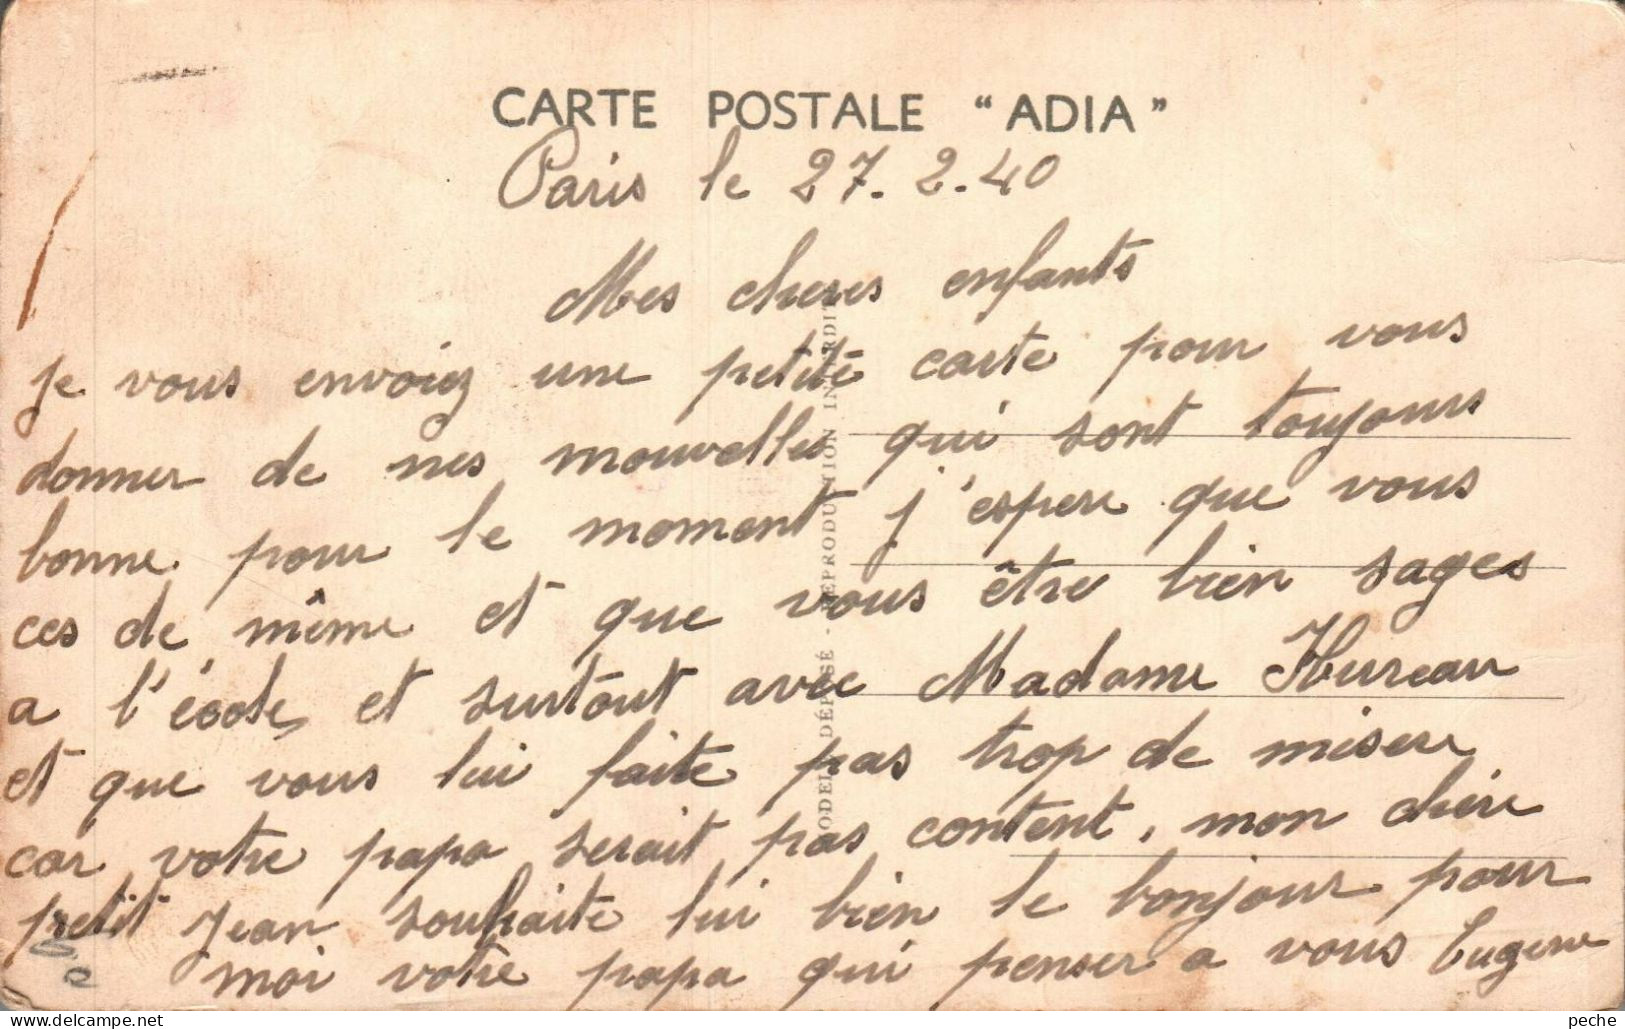 CARTE POSTALE "ADIA"
Paris le 27. 2. 40
Mes cheres enfants
je vous envoiez une petite carte pour vous
donner de nes nouvelles qui sont toujours
bonne. pour le moment j'espere que vous
ces de même et que vous être bien sages
a l'école, et surtout avec Madame Hureau
et que vous lui faite pas trop de misere
car votre papa serait pas content, mon chere
petit Jean souhaite lui bien le bonjour pour
moi votre papa qui penser a vous Eugene
MODELE DÉPOSÉ - REPRODUCTION INTERDITE
peche